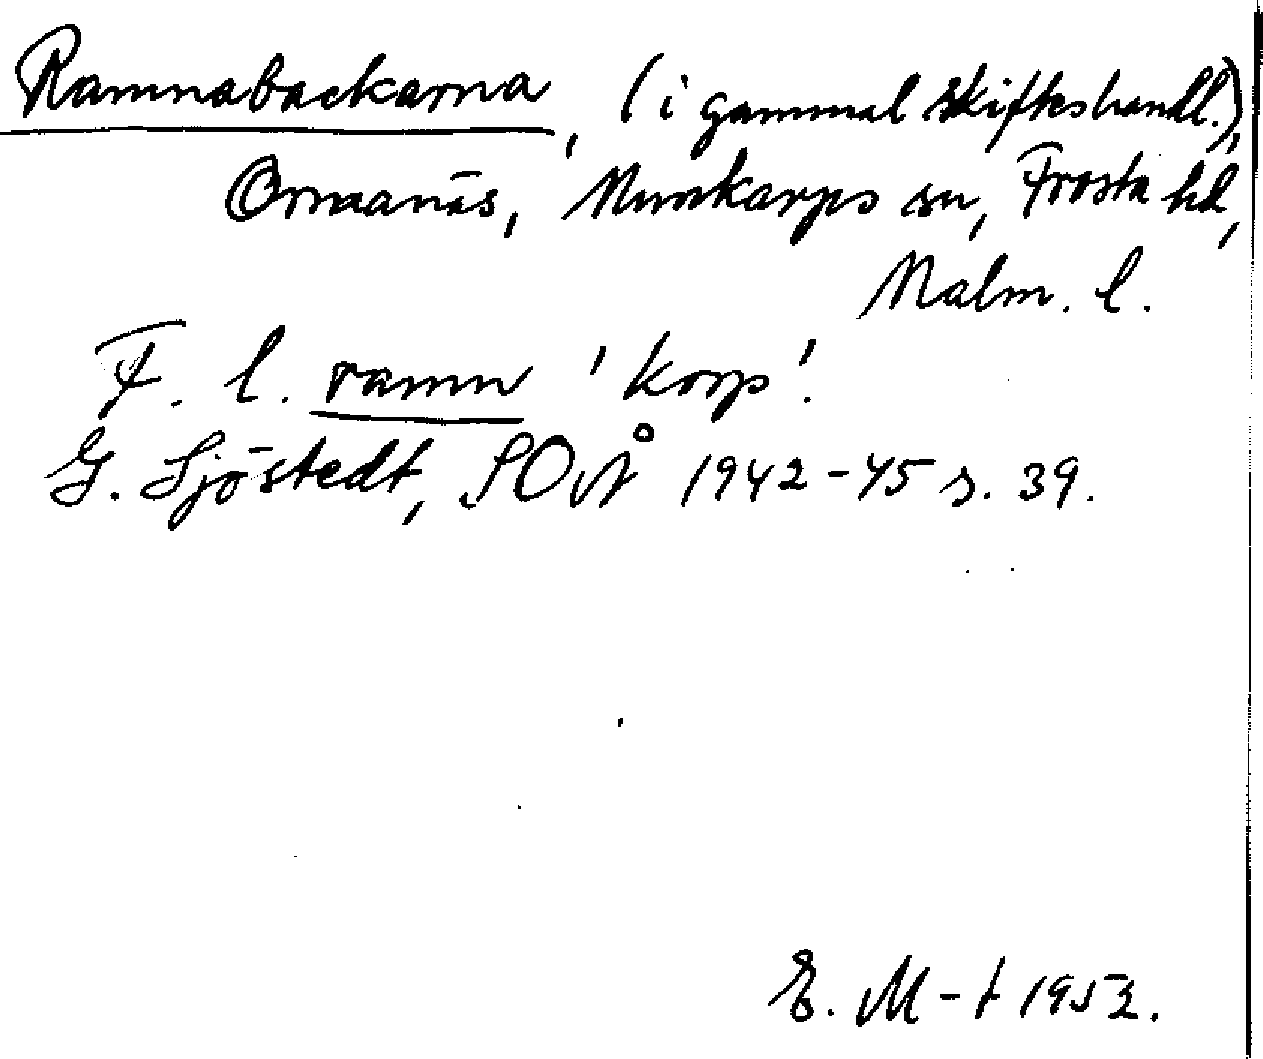 Ramnabackarna, (i gammal skifteshandl.),
Ornanäs, Munkarps sn, Frosta hd,
Malm. l.
F. l. ramn 'korp'.
G. Sjöstedt, SOÅ 1942-45 s. 39.
E. M-t 1952.